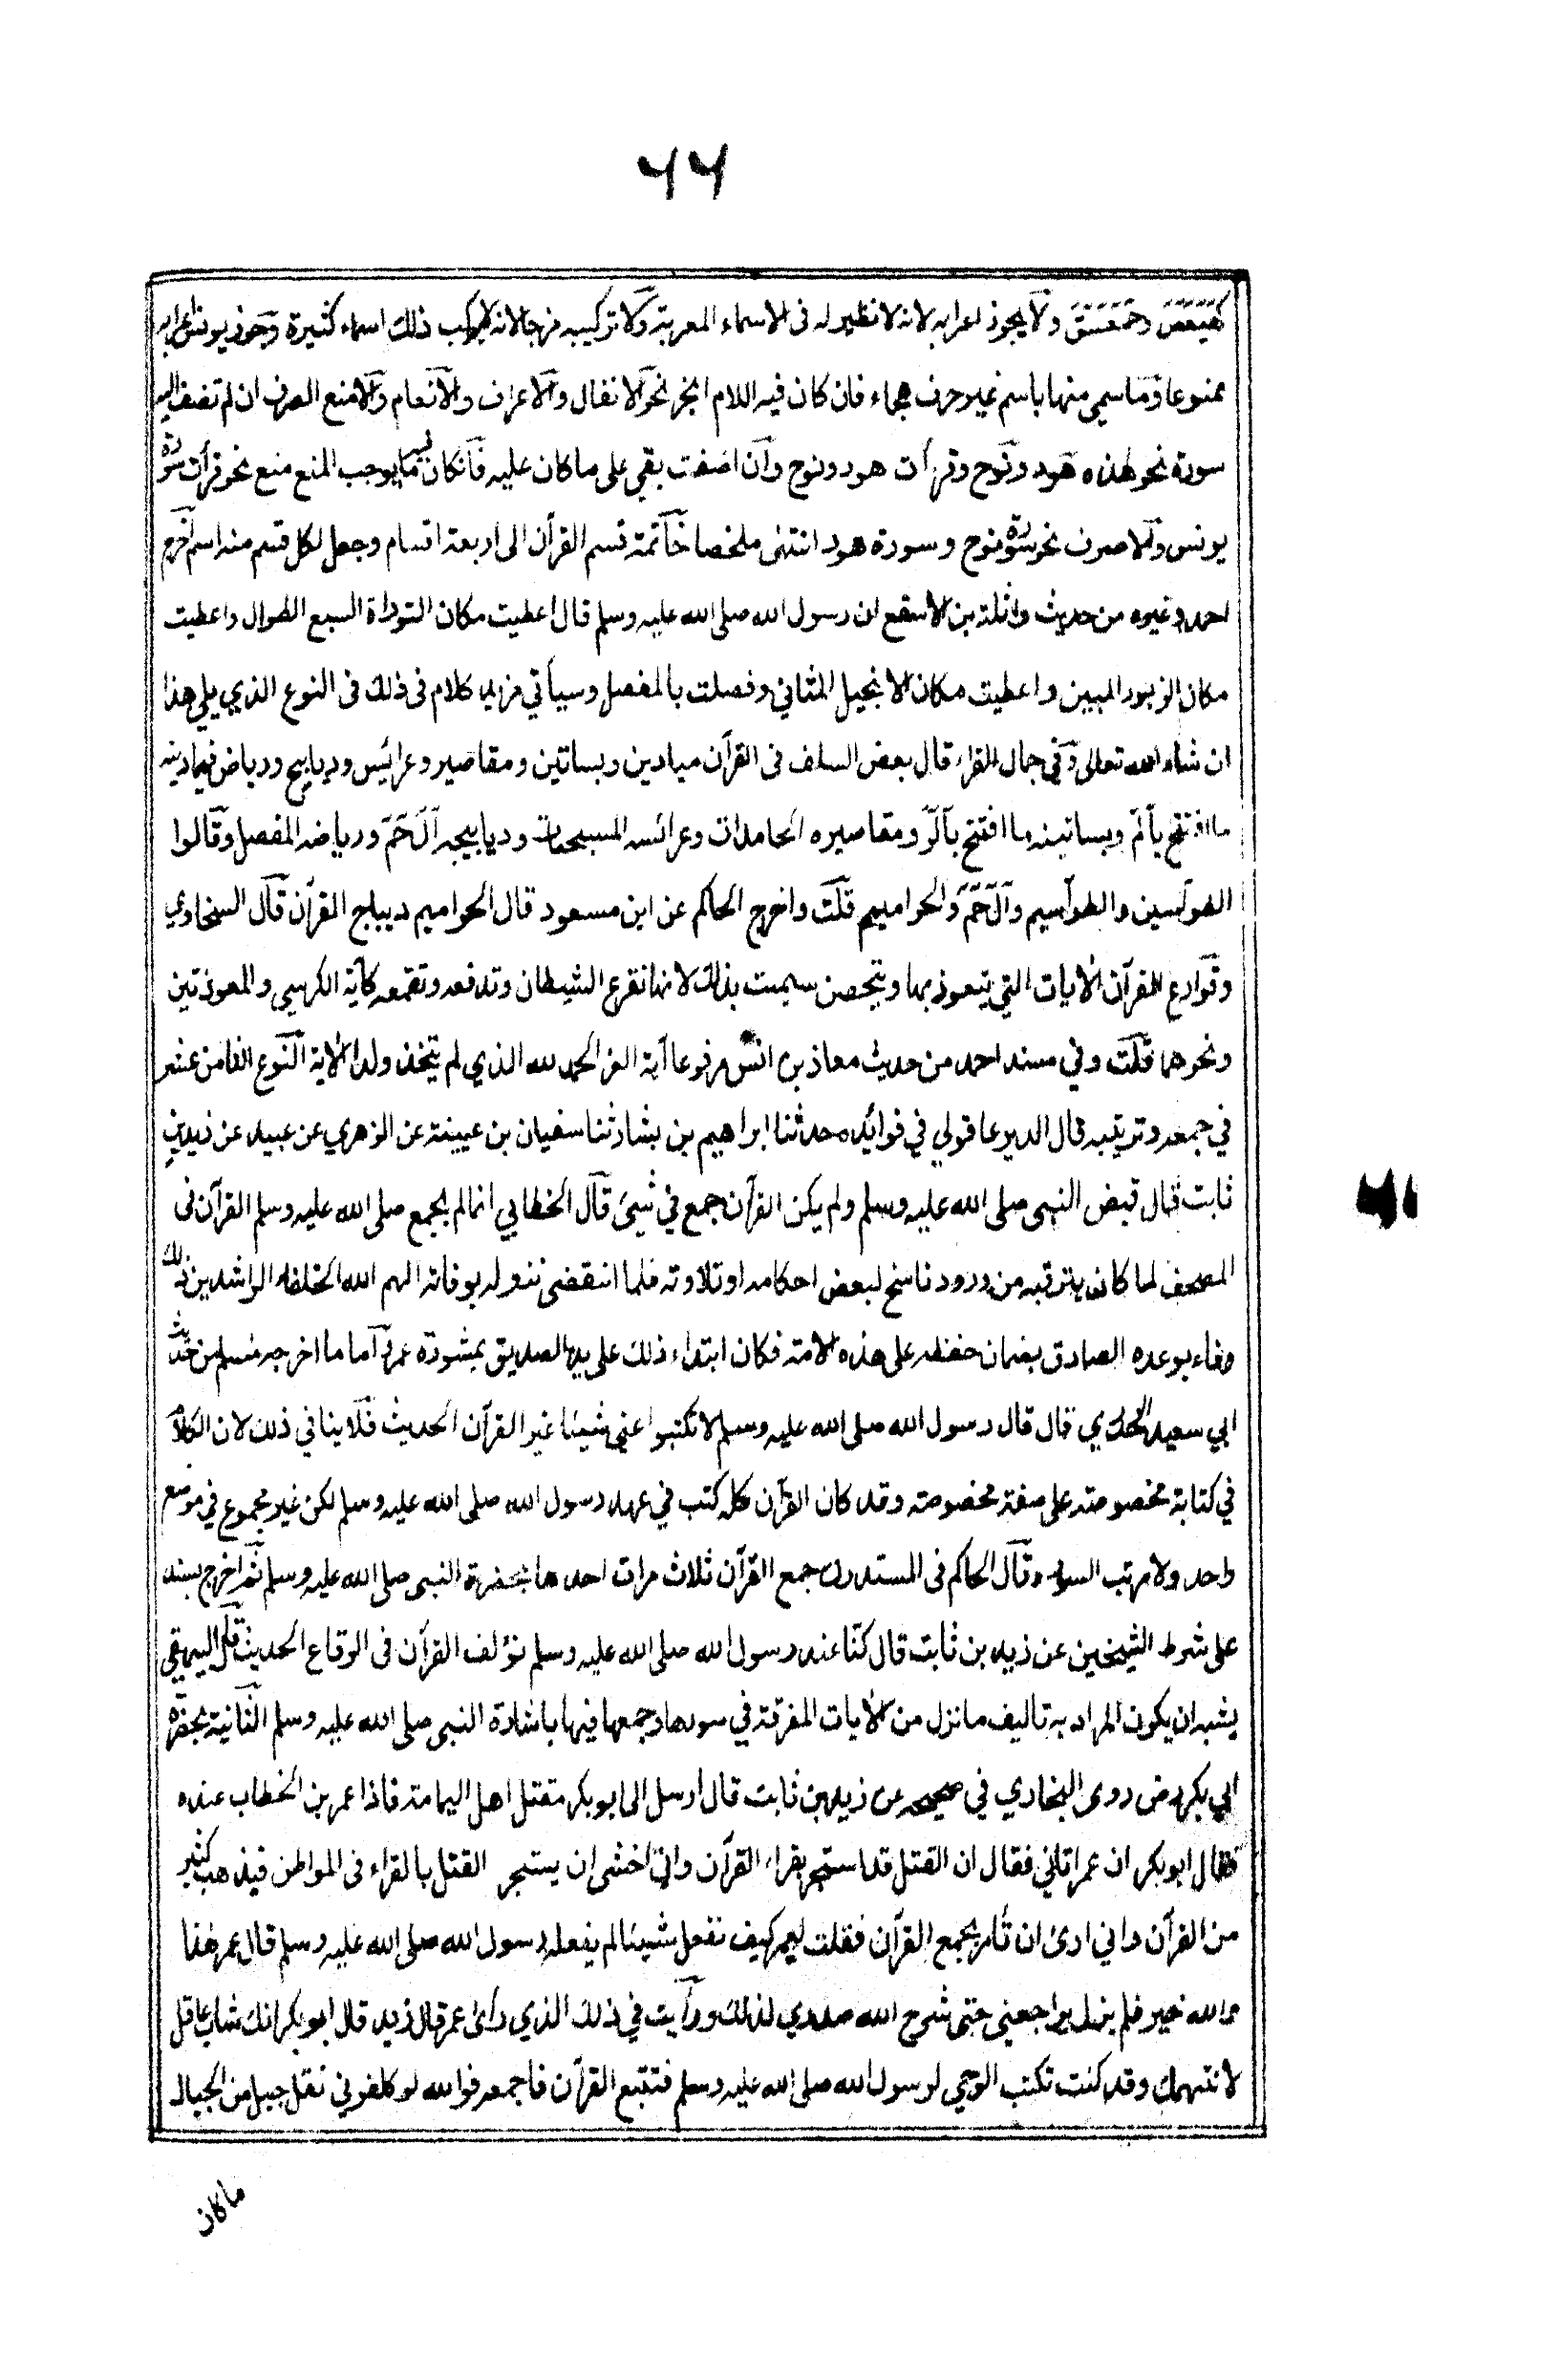 ٤٤
كهيعص وحمعسق ولا يجوز اعرابه لانه لا نظير له فى الاسماء المعربة ولا تركيبه مزجا لانه لا يركب ذلك اسماء كثيرة وجوز يونس اعرابه
ممنوعا وما سمي منها باسم غير حرف هجاء فان كان فيه اللام انجر نحو الانفال والاعراف والانعام والا منع الصرف ان لم تضف اليه
سورة نحو هذه هود ونوح وقرأت هود ونوح وان اضفت بقي على ما كان عليه فان كان فيه ما يوجب المنع منع نحو قرأت سورة
يونس والا صرف نحو سورة نوح وسورة هود انتهى ملخصا خاتمة قسم القرآن الى اربعة اقسام وجعل لكل قسم منه اسم اخرج
احمد وغيره من حديث واثلة بن الاسقع ان رسول الله صلى الله عليه وسلم قال اعطيت مكان التوراة السبع الطوال واعطيت
مكان الزبور المبين واعطيت مكان الانجيل المثاني وفصلت بالمفصل وسيأتي مزيد كلام فى ذلك فى النوع الذي يلي هذا
ان شاء الله تعالى وفي جمال القراء قال بعض السلف فى القرآن ميادين وبساتين ومقاصير وعرائيس وديابيج ورياض فميادينه
ما افتتح بألم وبساتينه ما افتتح بآلر ومقاصيره الحامدات وعرائسه المسبحات وديابيجه آل حم ورياضه المفصل وقالوا
الطواسين والطواسيم وآل حم والحواميم قلت واخرج الحاكم عن ابن مسعود قال الحواميم ديباج القرآن قال السخاوي
وقوارع القرآن الايات التي يتعوذ بها ويتحصن سميت بذلك لانها تقرع الشيطان وتدفعه وتقمعه كآية الكرسي والمعوذتين
ونحوهما قلت وفي مسند احمد من حديث معاذ بن انس مرفوعا آية العز الحمد لله الذي لم يتخذ ولدا الاية النوع الثامن عشر
في جمعه وترتيبه قال الدير عاقولي في فوائده حدثنا ابراهيم بن بشار ثنا سفيان بن عيينة عن الزهري عن عبيد عن زيد بن
ثابت قال قبض النبى صلى الله عليه وسلم ولم يكن القرآن جمع في شيئ قال الخطابي انما لم يجمع صلى الله عليه وسلم القرآن فى
المصحف لما كان يترقبه من ورود ناسخ لبعض احكامه او تلاوته فلما انقضى نزوله بوفاته الهم الله الخلفاء الراشدين ذلك
وفاء بوعده الصادق بضمان حفظه على هذه الامة فكان ابتداء ذلك على يد الصديق بمشورة عمر واما ما اخرجه مسلم من حديث
ابي سعيد الخدري قال قال رسول الله صلى الله عليه وسلم لا تكتبوا عني شيئا غير القرآن الحديث فلا ينافي ذلك لان الكلام
في كتابة مخصوصة على صفة مخصوصة وقد كان القرآن كله كتب في عهد رسول الله صلى الله عليه وسلم لكن غير مجموع في موضع
واحد ولا مرتب السور وقال الحاكم فى المستدرك جمع القرآن ثلاث مرات احدها بحضرة النبى صلى الله عليه وسلم ثم اخرج بسند
على شرط الشيخين عن زيد بن ثابت قال كنا عند رسول الله صلى الله عليه وسلم نؤلف القرآن فى الرقاع الحديث قال البيهقي
يشبه ان يكون المراد به تاليف ما نزل من الايات المفرقة في سورها وجمعها فيها باشارة النبى صلى الله عليه وسلم الثانية بحضرة
ابي بكر رض روى البخاري في صحيحه عن زيد بن ثابت قال ارسل الى ابو بكر مقتل اهل اليمامة فاذا عمر بن الخطاب عنده
فقال ابو بكر ان عمر اتاني فقال ان القتل قد استحر بقراء القرآن واني اخشى ان يستحر القتل بالقراء فى المواطن فيذهب كثير
من القرآن واني ارى ان تأمر بجمع القرآن فقلت لعمر كيف نفعل شيئا لم يفعله رسول الله صلى الله عليه وسلم قال عمر هذا
والله خير فلم يزل يراجعني حتى شرح الله صدري لذلك ورأيت في ذلك الذي رأى عمر قال زيد قال ابو بكر انك شاب عاقل
لا نتهمك وقد كنت تكتب الوحي لرسول الله صلى الله عليه وسلم فتتبع القرآن فاجمعه فوالله لو كلفوني نقل جبل من الجبال
ما كان